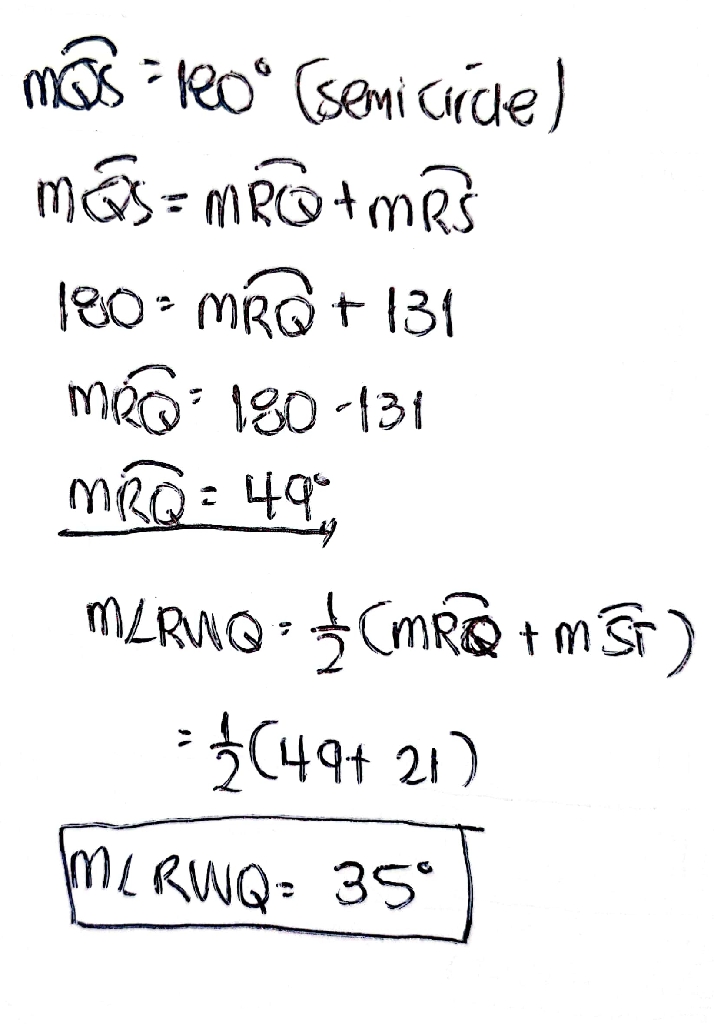 mQS = 180° (semicircle)
mQS = mRQ + mRS
180 = mRQ + 131
mRQ = 180 - 131
mRQ = 49°
m∠RWQ = 1/2 (mRQ + mST)
= 1/2 (49 + 21)
m∠RWQ = 35°